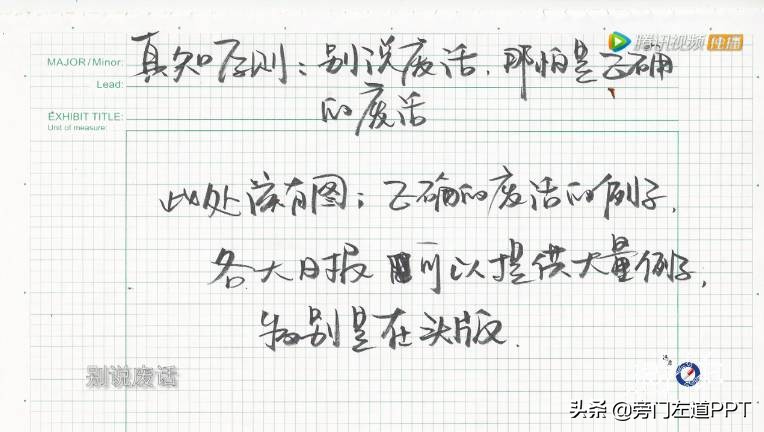 腾讯视频 独播
MAJOR / Minor:
真知原则：别说废话，那怕是正确
Lead:
的废话
EXHIBIT TITLE:
Unit of measure:
此处该有图：正确的废话的例子，
各大日报可以提供大量例子，
特别是在头版.
别说废话
头条 @旁门左道PPT